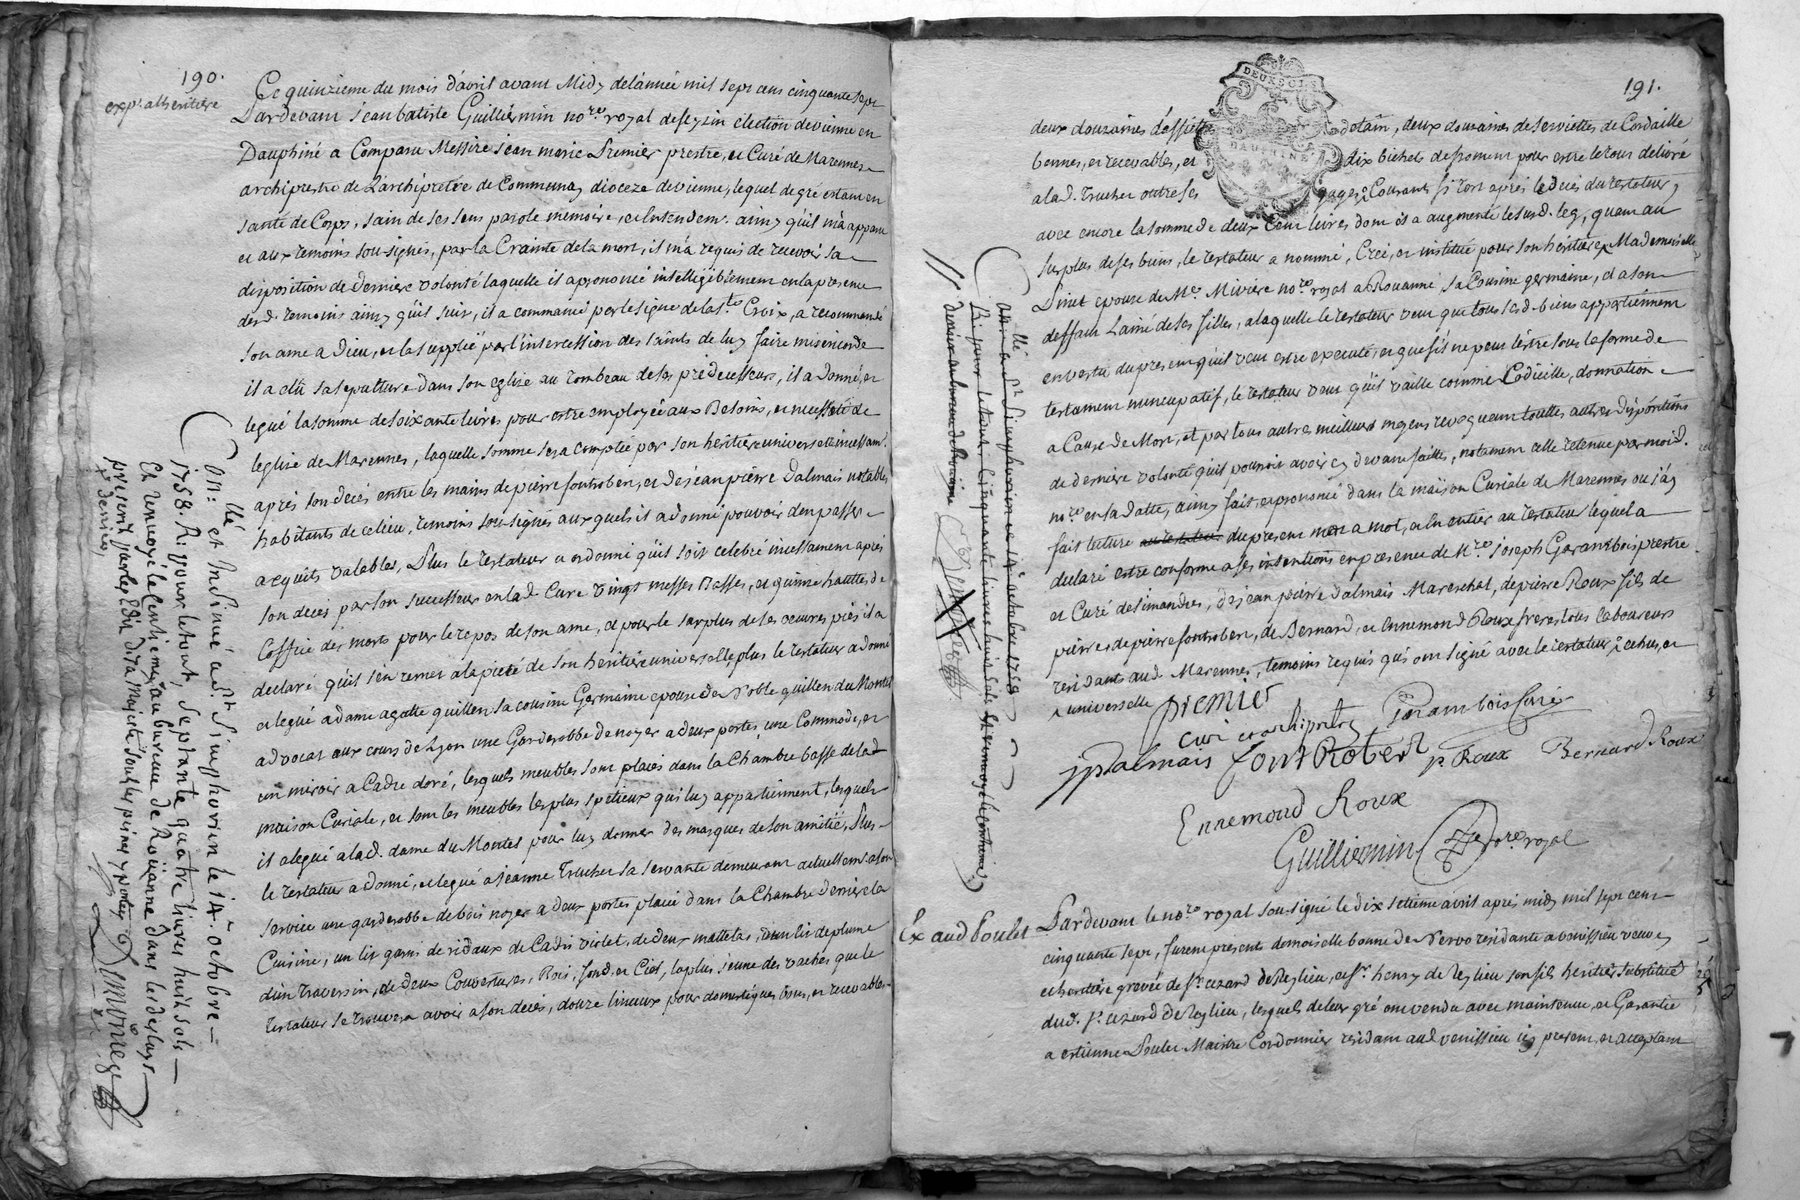 190.
exp: a lheritiere
Ce quinzieme du mois d'avril avant Midy de lannée mil sept cens cinquante sept
Pardevant jean batiste Guilliermin no.re royal de seyzin election de vienne en
Dauphiné a Comparu Messire jean marie Premier prestre, et Curé de Marennes
archiprestre de L'archipretée de Communay dioceze de vienne, lequel de gré estant en
santé de Corps, sain de ses sens parole memoire, et entendem.t ainsy qu'il m'a apparu
et aux temoins sousignés, par la Crainte de la mort, il m'a requis de recevoir sa
disposition de derniere volonté laquelle il a prononcé intelligiblement en la presence
des d. temoins ainsy qu'il suit, il a commancé par le signe de la s.te Croix, a recommandé
son ame a Dieu, et la supplié par l'intercession des saints de luy faire misericorde
il a élu sa sepulture dans son eglise au tombeau de ses predecesseurs, il a donné, et
legué la somme de soixante livres pour estre employée aux Besoins, et necessité de
leglise de Marennes, laquelle somme sera comptée par son heritiere universelle incessam.t
après son decés entre les mains de pierre fontroben, et de jean pierre dalmais notables
habitants de ce lieu, temoins sousignés auxquels il a donné pouvoir d'en passer
acquits valables, Plus le testateur a ordonné qu'il soit celebré incessament après
son decés par son successeur en lad. Cure vingt messes Basses, et quinze hauttes, de
l'office des morts pour le repos de son ame, et pour le surplus de ses oeuvres pies il a
declaré qu'il s'en remet a la pieté de son heritiere universelle plus le testateur a donné
et legué a dame agathe guillen sa cousine Germaine epouse de Noble guillen du Montet
advocat aux cours de Lyon une Garderobbe de noyer a deux portes, une Commode, et
un miroir a Cadre doré, lesquels meubles sont placés dans la Chambre basse de lad.
maison Curiale, et sont les meubles les plus spetieux qui luy appartiennent, lesquels
il a legué a lad. dame du Montet pour luy donner des marques de son amitié, Plus
le testateur a donné, et legué a jeanne Trucher sa servante demeurant actuellem.t a son
service une garderobbe de bois noyer a deux portes placée dans la Chambre derriere la
Cuisine, un lit garni de ridaux de Cadis violet, de deux mattelas, d'un lit de plume
d'un Traversin, de deux Couvertures, Bois, fond, et Ciel, la plus jeune des vaches que le
testateur se trouvera avoir a son decés, douze linceux pour domestiques bons, et recevables
on.llé et insinué a S.t Simphorien le 14.e octobre
1758. R. pour le tout, septante quatre livres huit sols
Et renvoyé le centieme au bureau de Roüanne dans les delays
prescrit par les Edits de sa Majesté sous les peines y portées
191.
DEUX SOLS
DAUPHINÉ
deux douzaines d'assiettes d'etain, deux douzaines de serviettes de Cordaille
bonnes, et recevables, et dix bichets de froment pour estre le tout delivré
a lad. Trucher outre ses gages Courants si tost après le decés du testateur
avec encore la somme de deux cent livres dont il a augmenté le susd. leg, quant au
surplus de ses biens, le testateur a nommé, Creé, et institué pour son heritiere Mademoiselle
Pinet epouse de M.e Miviere no.re royal a Rouanne sa Cousine germaine, et a son
deffaut L'ainé de ses filles, a laquelle le testateur veut que tous lesd. biens appartiennent
en vertu du present qu'il veut estre executé, et que s'il ne peut l'estre sous la forme de
testament nuncupatif, le testateur veut qu'il vaille comme Codicille, donnation
a Cause de Mort, et par tous autres meilleurs moyens revoquant touttes autres dispositions
de derniere volonté qu'il pourroit avoir cy devant faittes, notament celle retenue par moi d.
no.re en sa datte, ainsy fait, et prononcé dans la maison Curiale de Marennes ou j'ay
fait lecture du present mot a mot, et en entier au testateur lequel a
declaré estre conforme a ses intentions en presence de M.re joseph Garambois prestre
et Curé de simandres, de jean pierre dalmais Mareschal, de pierre Roux fils de
pierre, de pierre fontroben, de Bernard, et Ennemond Roux freres tous laboureurs
residants aud. Marennes, temoins requis qui ont signé avec le testateur
^ universelle
premier
curé et archiprêtre
Garambois Curé
jp Dalmais
font Robert
p. Roux
Bernard Roux
Ennemond Roux
Guilliermin no.re royal
llé a S.t Simphorien ce 14.e octobre 1758
R. pour le tout Cinquante livres huit sols et renvoyé le centieme
denier au bureau de Rouanne
Ex aud Poulet
Pardevant le no.re royal sousigné le dix setieme avril après midy mil sept cent
cinquante sept, furent presents demoiselle bonne de Nervo residante a venissieu veuve
et heritiere grevée de s.r cezard de Reglieu, et s.r henry de Reglieu son fils heritier substitué
dud. s.r cezard de Reglieu, lesquels de leur gré ont vendu avec maintenue, et Garantie
a estienne Poulet Maistre Cordonnier residant aud. venissieu icy present, et acceptant